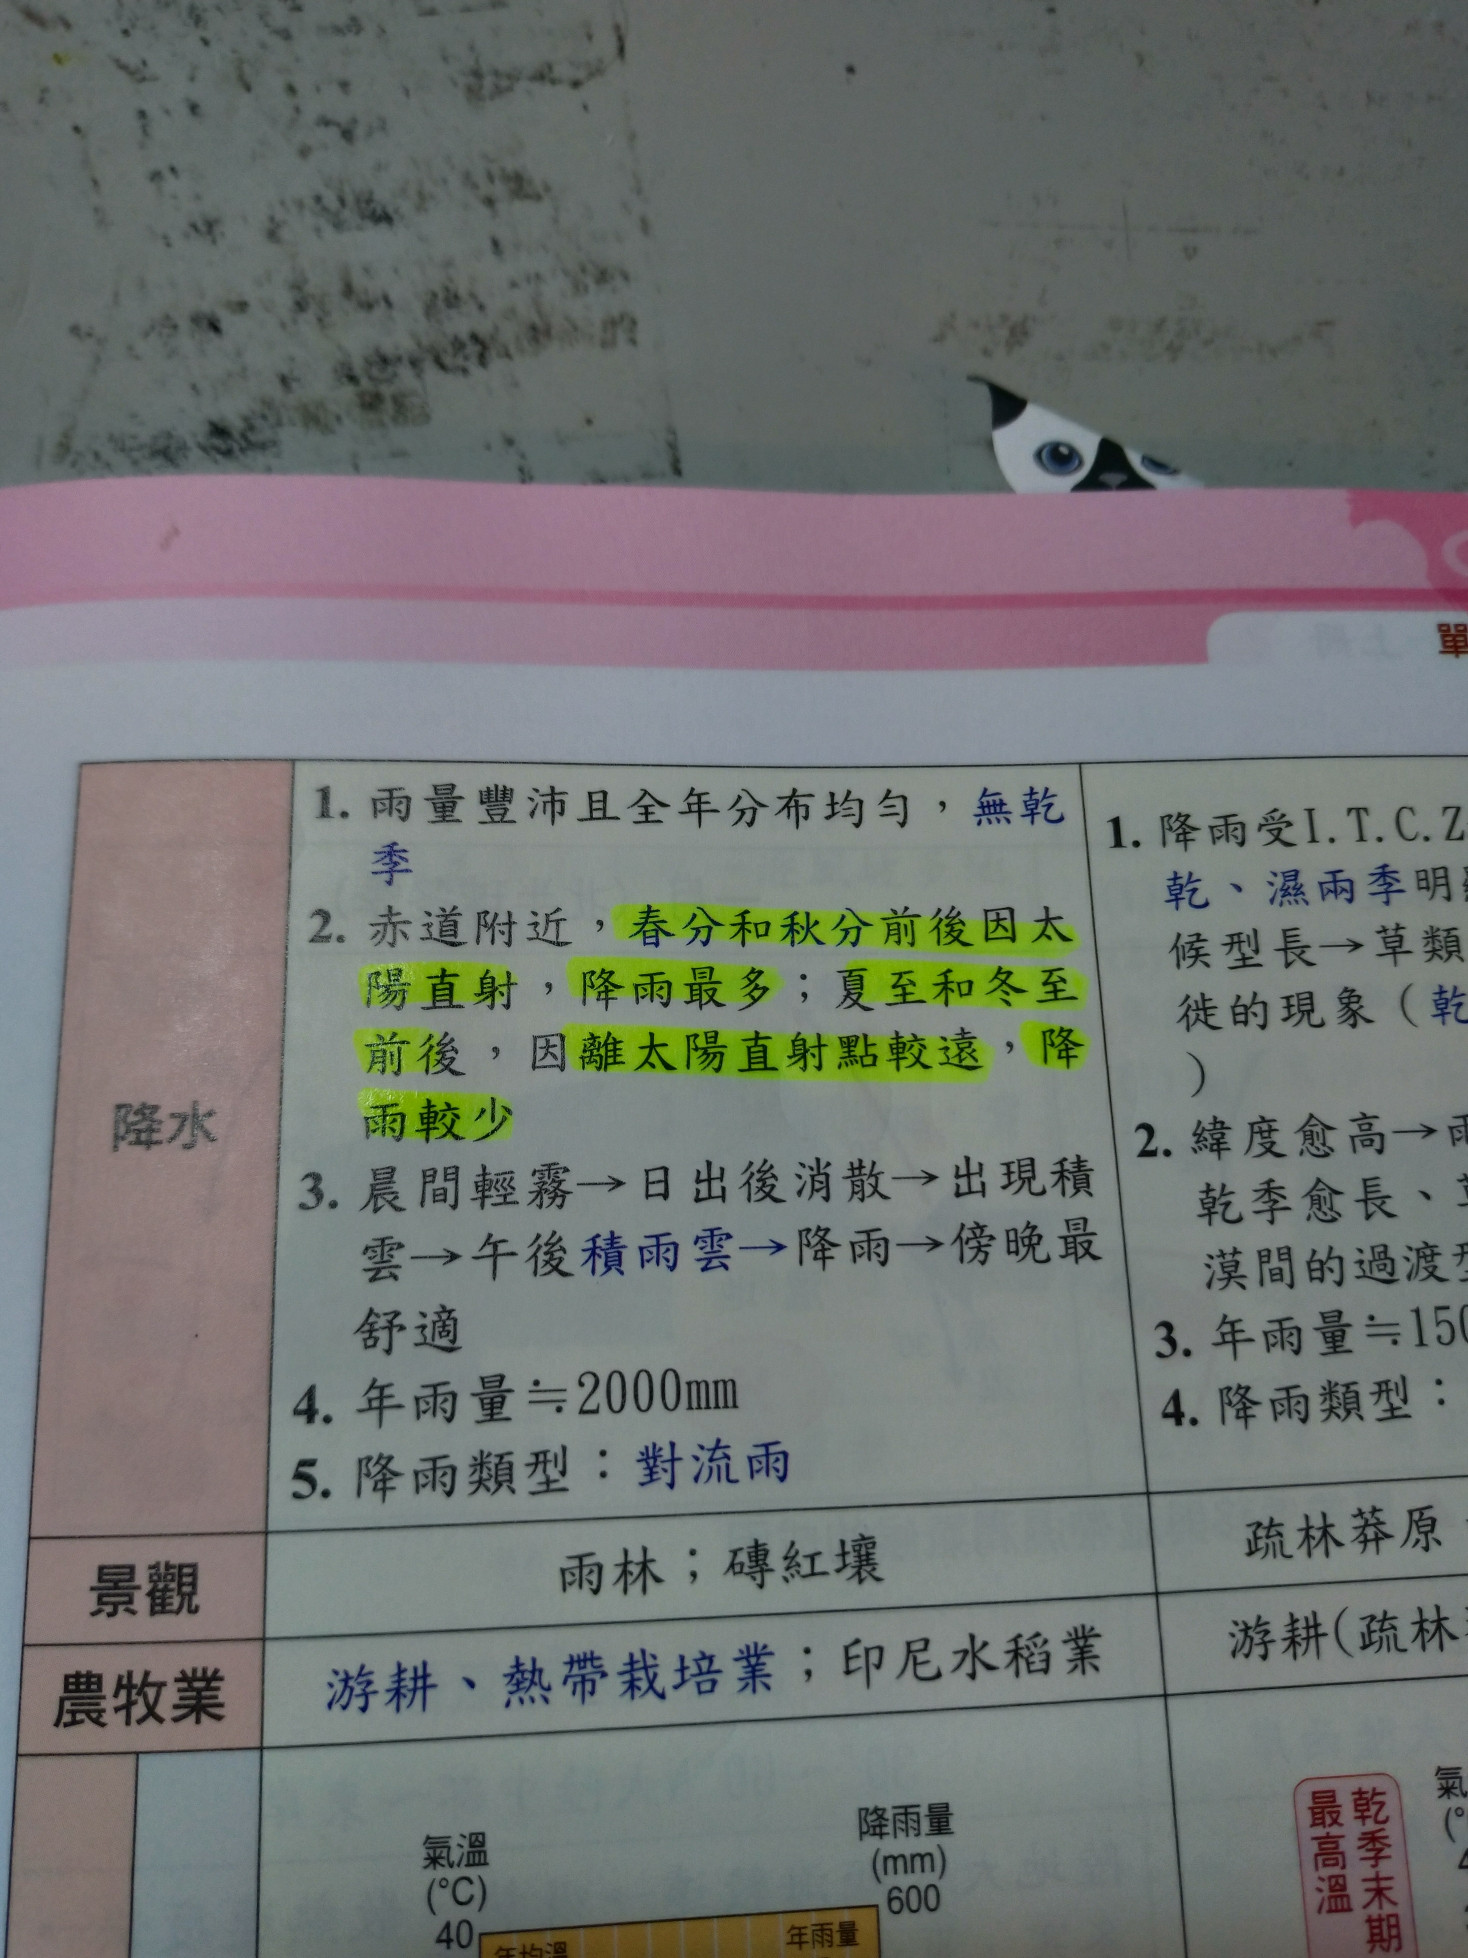 單
降水
1. 雨量豐沛且全年分布均勻，無乾
季
2. 赤道附近，春分和秋分前後因太
陽直射，降雨最多；夏至和冬至
前後，因離太陽直射點較遠，降
雨較少
3. 晨間輕霧→日出後消散→出現積
雲→午後積雨雲→降雨→傍晚最
舒適
4. 年雨量≒2000mm
5. 降雨類型：對流雨
1. 降雨受I.T.C.Z
乾、濕兩季明
候型長→草類
徙的現象（乾
）
2. 緯度愈高→雨
乾季愈長、
漠間的過渡型
3. 年雨量≒150
4. 降雨類型：
景觀
雨林；磚紅壤
疏林莽原
農牧業
游耕、熱帶栽培業；印尼水稻業
游耕(疏林
氣溫
(°C)
40
降雨量
(mm)
600
年均溫
年雨量
乾季末期
最高溫
氣
(°